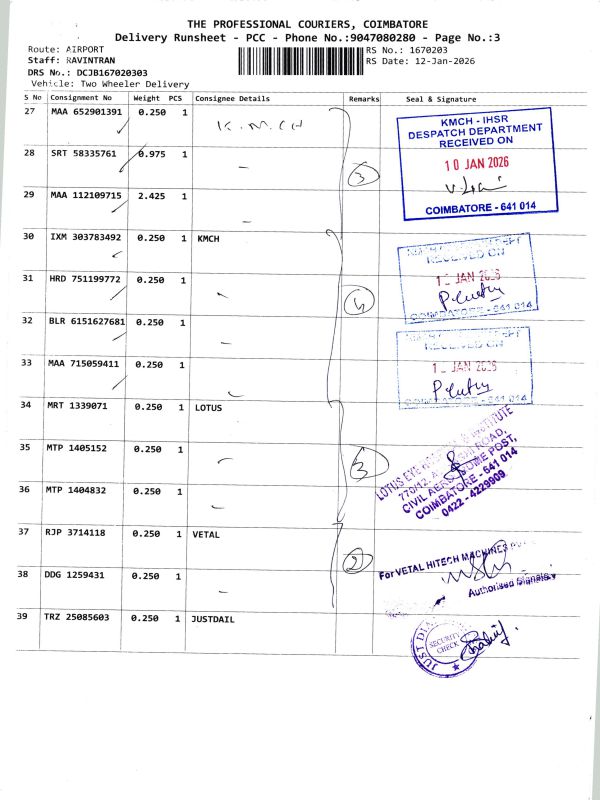 THE PROFESSIONAL COURIERS, COIMBATORE
Delivery Runsheet - PCC - Phone No.:9047080280 - Page No.:3
Route: AIRPORT
RS No.: 1670203
Staff: RAVINTRAN
RS Date: 12-Jan-2026
DRS No.: DCJB167020303
Vehicle: Two Wheeler Delivery
S No Consignment No Weight PCS Consignee Details Remarks Seal & Signature
27 MAA 652901391 0.250 1 K.M.CH
28 SRT 58335761 0.975 1
3
29 MAA 112109715 2.425 1
KMCH - IHSR
DESPATCH DEPARTMENT
RECEIVED ON
10 JAN 2026
COIMBATORE - 641 014
30 IXM 303783492 0.250 1 KMCH
31 HRD 751199772 0.250 1
32 BLR 6151627681 0.250 1
33 MAA 715059411 0.250 1
RECEIVED ON
JAN 2026
COIMBATORE - 641 014
RECEIVED ON
JAN
COIMBATORE - 641 014
34 MRT 1339071 0.250 1 LOTUS
35 MTP 1405152 0.250 1
3
36 MTP 1404832 0.250 1
LOTUS EYE INSTITUTE
770/12,
CIVIL AERODROME POST,
COIMBATORE - 641 014
0422 - 4229909
37 RJP 3714118 0.250 1 VETAL
2
38 DDG 1259431 0.250 1
For VETAL HITECH MACHINES
Authorised
39 TRZ 25085603 0.250 1 JUSTDAIL
JUST DIA
SECURITY
CHECK